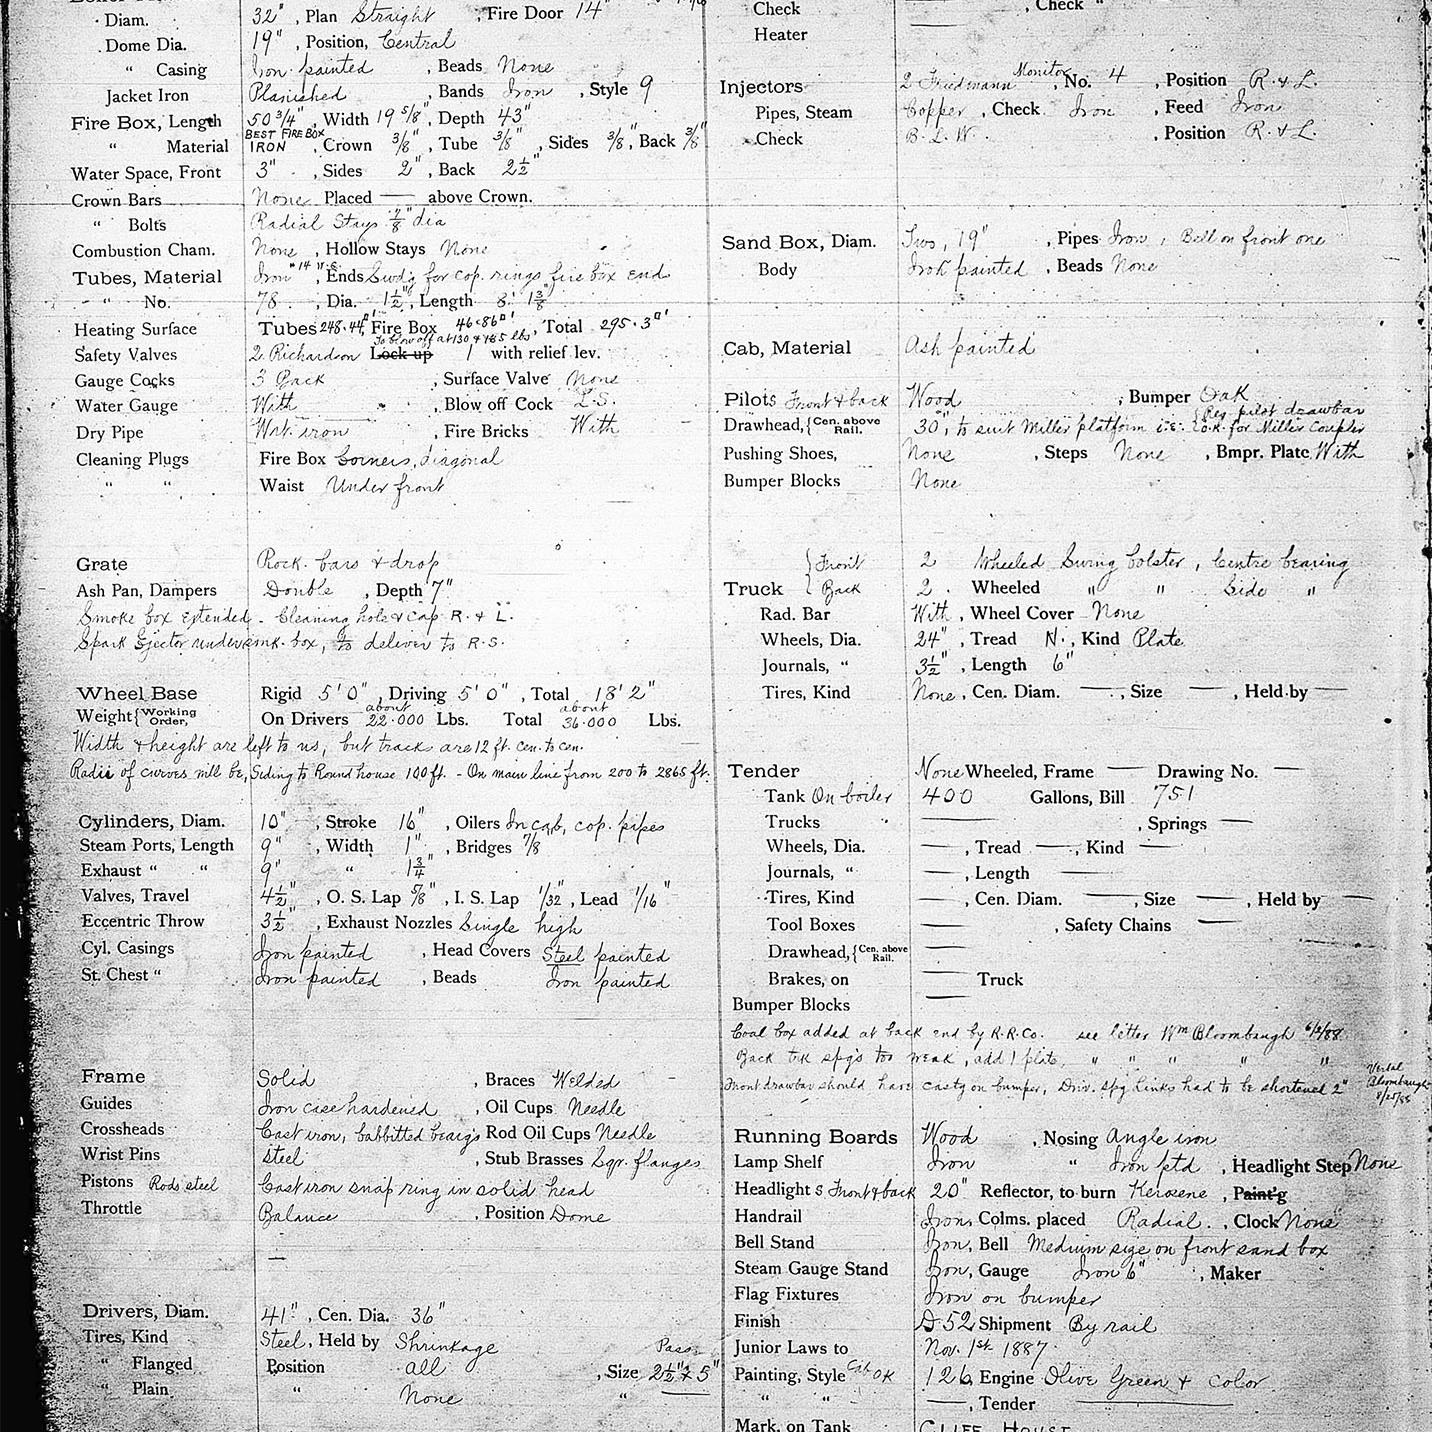 Diam. 32", Plan Straight, Fire Door 14"
Dome Dia. 19", Position, Central
" Casing Iron painted, Beads None
Jacket Iron Planished, Bands Iron, Style 9
Fire Box, Length 50 3/4", Width 19 5/8", Depth 43"
" Material BEST FIRE BOX IRON, Crown 3/8", Tube 3/8", Sides 3/8", Back 3/8"
Water Space, Front 3", Sides 2", Back 2 1/2"
Crown Bars None Placed — above Crown.
" Bolts Radial Stays 7/8" dia
Combustion Cham. None, Hollow Stays None
Tubes, Material Iron, Ends Swdg for cop. rings fire box end
" No. 78, Dia. 1 1/2", Length 8' 1 3/8"
Heating Surface Tubes 248.44□', Fire Box 46.86□', Total 295.3□'
To blow off at 130 & 135 lbs
Safety Valves 2 Richardson Lock up 1 with relief lev.
Gauge Cocks 3 Back, Surface Valve None
Water Gauge With, Blow off Cock L.S.
Dry Pipe Wrt. iron, Fire Bricks With
Cleaning Plugs Fire Box Corners, diagonal
" " Waist Under front
Grate Rock. bars & drop
Ash Pan, Dampers Double, Depth 7"
Smoke box extended. Cleaning hole & cap R. & L.
Spark Ejector under smk. box, to deliver to R.S.
Wheel Base Rigid 5' 0", Driving 5' 0", Total 18' 2"
Weight {Working Order, On Drivers about 22.000 Lbs. Total about 36.000 Lbs.
Width & height are left to us, but tracks are 12 ft. cen. to cen.
Radii of curves will be, Siding to Roundhouse 100 ft. - On main line from 200 to 2865 ft.
Cylinders, Diam. 10", Stroke 16", Oilers In cab, cop. pipes
Steam Ports, Length 9", Width 1", Bridges 7/8
Exhaust " " 9" " 1 3/4"
Valves, Travel 4 1/2", O. S. Lap 5/8", I. S. Lap 1/32", Lead 1/16"
Eccentric Throw 3 1/2", Exhaust Nozzles Single high
Cyl. Casings Iron painted, Head Covers Steel painted
St. Chest " Iron painted, Beads Iron painted
Frame Solid, Braces Welded
Guides Iron case hardened, Oil Cups Needle
Crossheads Cast iron, babbitted bearg's Rod Oil Cups Needle
Wrist Pins Steel, Stub Brasses Sqr. flanges
Pistons Rods steel Cast iron snap ring in solid head
Throttle Balance, Position Dome
Drivers, Diam. 41", Cen. Dia. 36"
Tires, Kind Steel, Held by Shrinkage
" Flanged Position all, Size 2 1/2" x 5"
" Plain " None "
Check —, Check "
Heater —
Injectors 2 Friedmann Monitor, No. 4, Position R. & L.
Pipes, Steam Copper, Check Iron, Feed Iron
Check B. L. W., Position R. & L.
Sand Box, Diam. Two, 19", Pipes Iron, Bell on front one
Body Iron painted, Beads None
Cab, Material Ash painted
Pilots Front & back Wood, Bumper Oak
Drawhead, {Cen. above Rail. 30", to suit Miller platform i.e. {Reg. pilot drawbar O.K. for Miller Coupler
Pushing Shoes, None, Steps None, Bmpr. Plate With
Bumper Blocks None
Truck {Front 2 Wheeled Swing bolster, Centre bearing
{Back 2 Wheeled " " Side "
Rad. Bar With, Wheel Cover None
Wheels, Dia. 24", Tread N., Kind Plate
Journals, " 3 1/2", Length 6"
Tires, Kind None, Cen. Diam. —, Size —, Held by —
Tender None Wheeled, Frame — Drawing No. —
Tank On boiler 400 Gallons, Bill 751
Trucks —, Springs —
Wheels, Dia. —, Tread —, Kind —
Journals, " —, Length —
Tires, Kind —, Cen. Diam. —, Size —, Held by —
Tool Boxes —, Safety Chains —
Drawhead, {Cen. above Rail. —
Brakes, on — Truck
Bumper Blocks —
Coal box added at back end by R.R. Co. see letter Wm Bloombaugh 6/2/88
Back trk spg's too weak, add 1 plate " " " " "
Front drawbar should have castg on bumper, Driv. spg links had to be shortened 2" Verbal Bloombaugh 8/25/88
Running Boards Wood, Nosing Angle iron
Lamp Shelf Iron " Iron ptd, Headlight Step None
Headlights Front & back 20" Reflector, to burn Kerosene, Paint'g
Handrail Iron, Colms. placed Radial, Clock None
Bell Stand Iron, Bell Medium size on front sand box
Steam Gauge Stand Iron, Gauge Iron 6", Maker
Flag Fixtures Iron on bumper
Finish D 52 Shipment By rail
Junior Laws to Nov. 1st 1887
Painting, Style Cab OK 126, Engine Olive Green & color
" " —, Tender —
Mark, on Tank CLIFF HOUSE